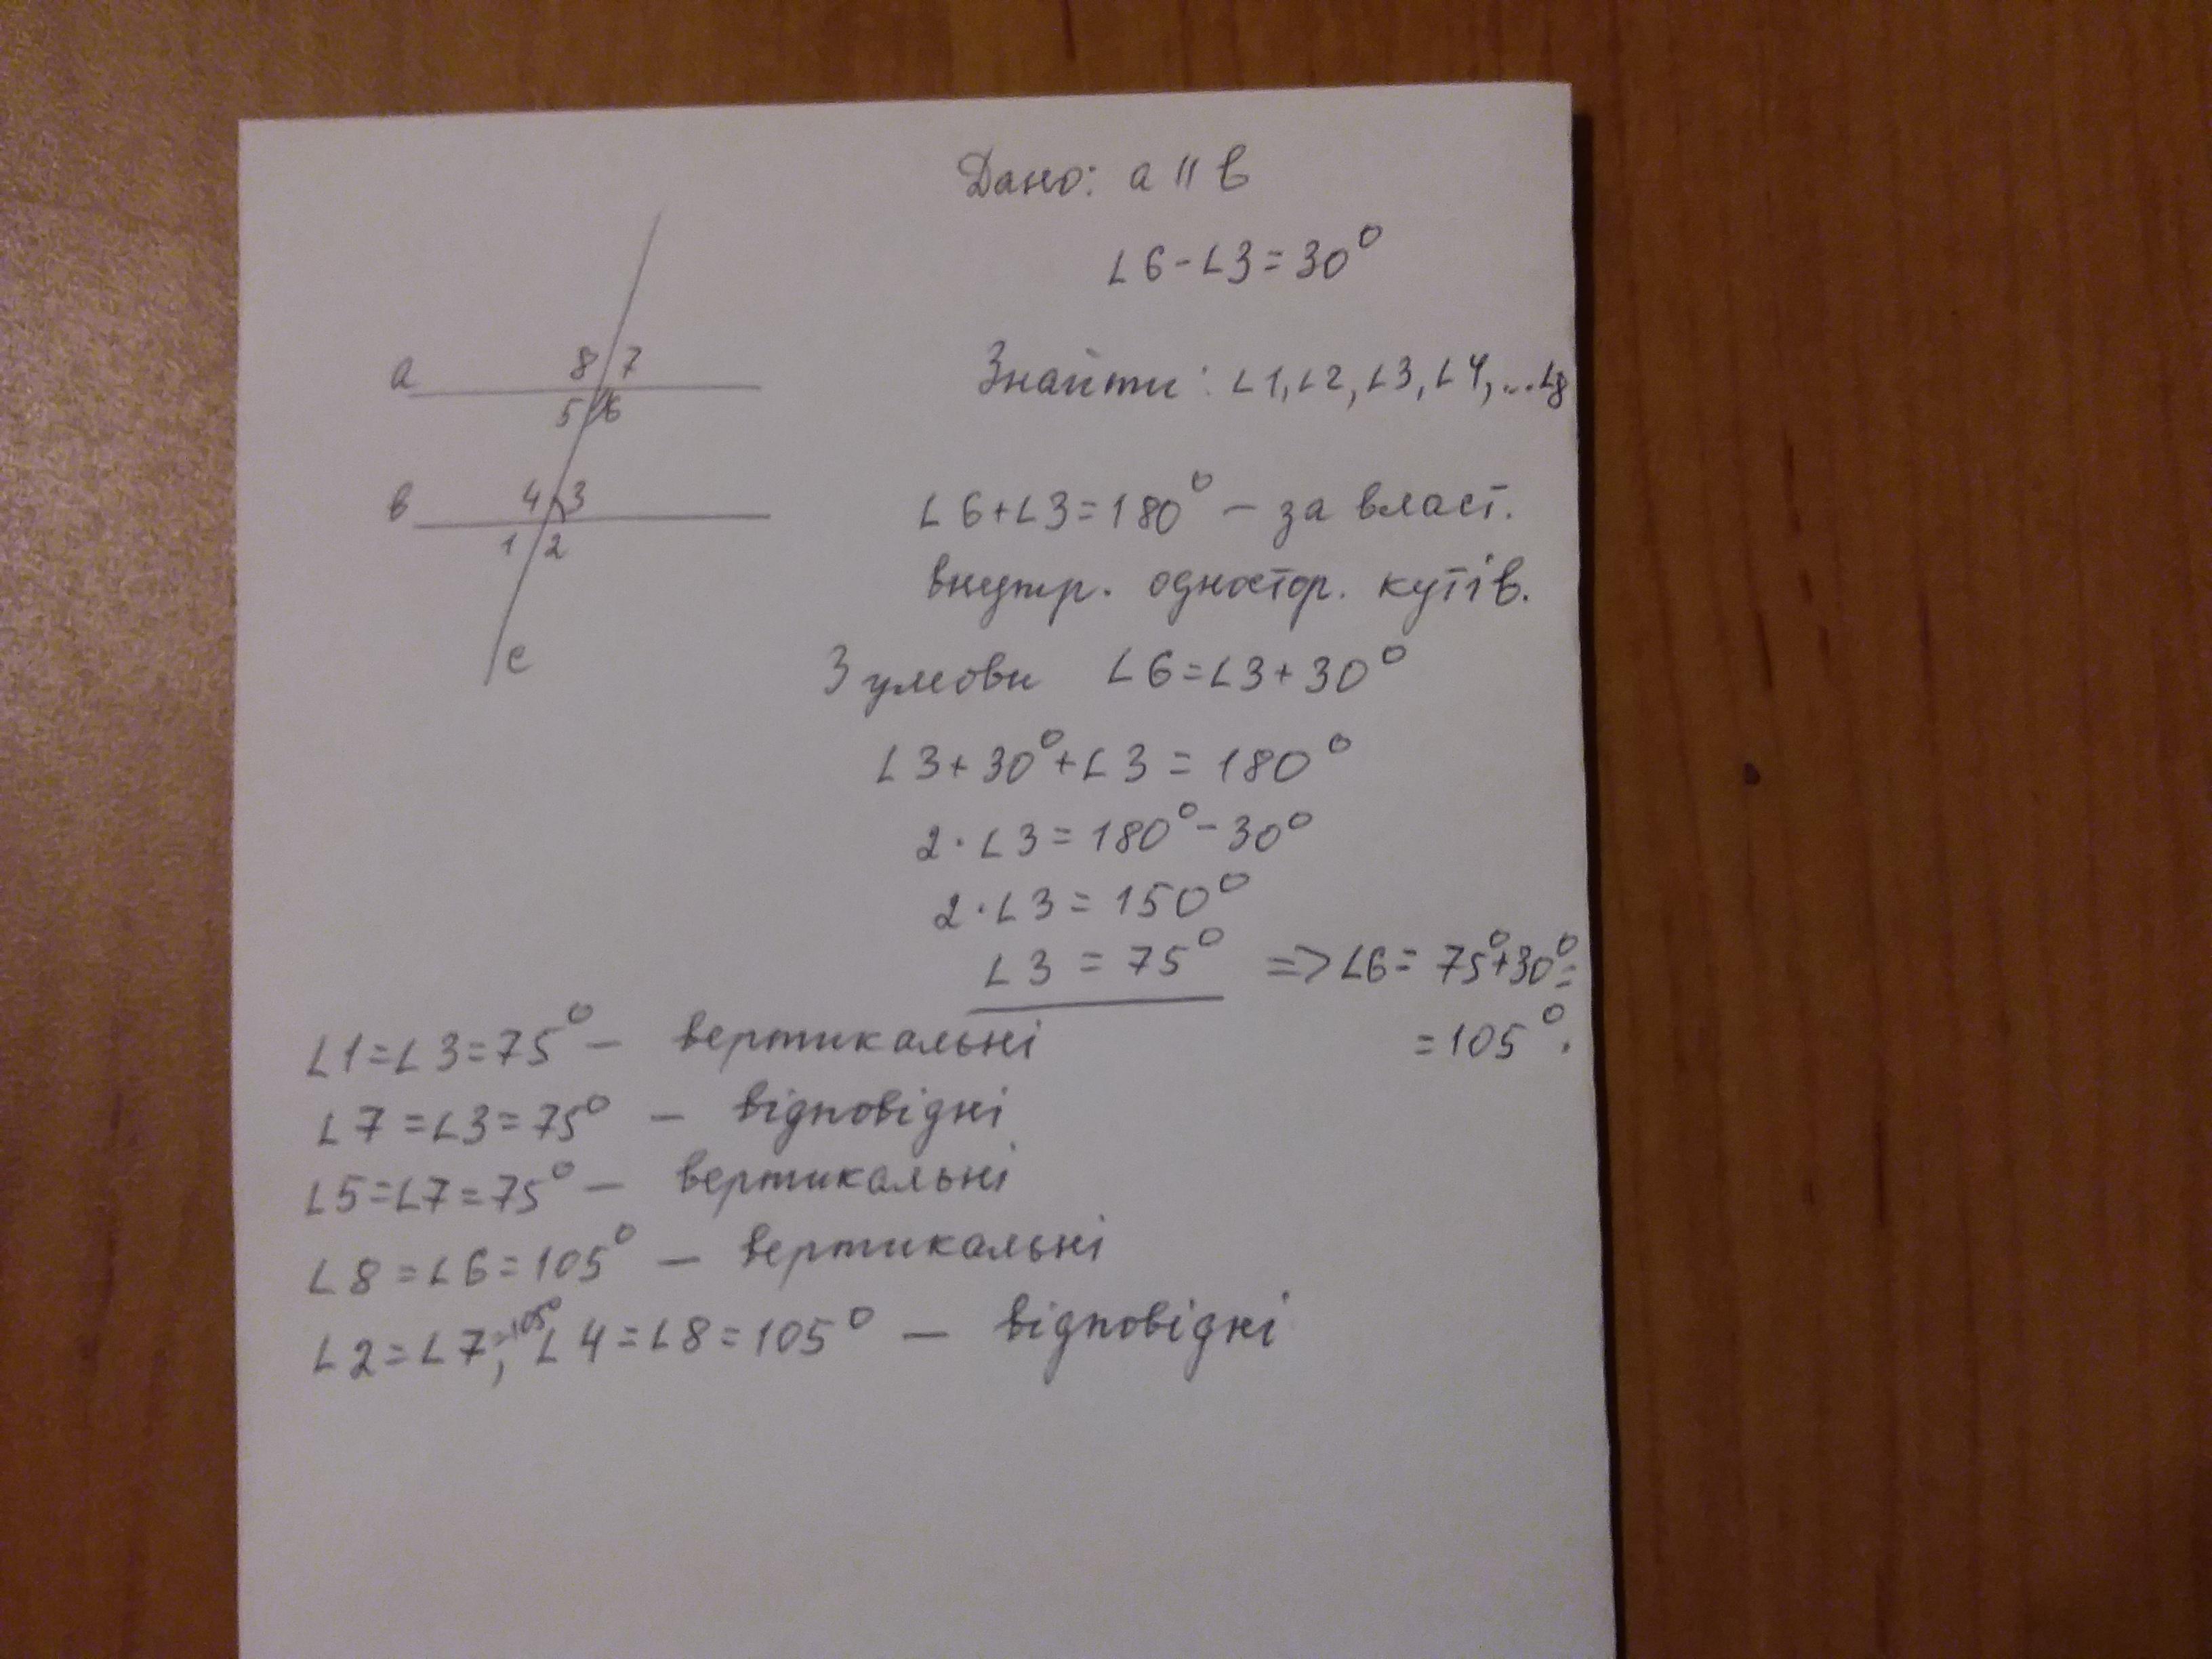 Дано: a || b
∠6-∠3=30°
8 7
a
5 6
Знайти: ∠1, ∠2, ∠3, ∠4, ...∠8
в 4 3
1 2
∠6+∠3=180° — за власт.
внутр. одностор. кутів.
c
З умови ∠6=∠3+30°
∠3+30°+∠3=180°
2·∠3=180°-30°
2·∠3=150°
∠3=75° => ∠6=75°+30°=
=105°.
∠1=∠3=75° — вертикальні
∠7=∠3=75° — відповідні
∠5=∠7=75° — вертикальні
∠8=∠6=105° — вертикальні
∠2=∠7=105°, ∠4=∠8=105° — відповідні